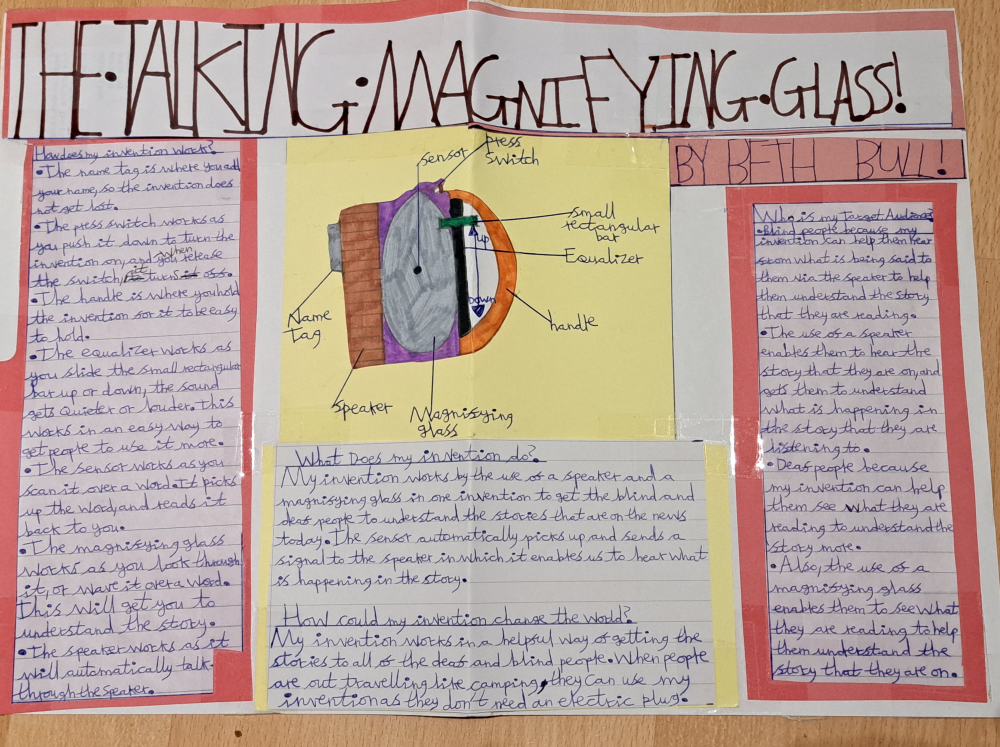 THE•TALKING•MAGNIFYING•GLASS!
BY BETH BULL!
How does my invention work?
•The name tag is where you add
your name, so the invention does
not get lost.
•The press switch works as
you push it down to turn the
invention on, and when you release
the switch, it turns off.
•The handle is where you hold
the invention for it to be easy
to hold.
•The equalizer works as
you slide the small rectangular
bar up or down, the sound
gets Quieter or louder. This
works in an easy way to
get people to use it more.
•The sensor works as you
scan it over a word. It picks
up the word and reads it
back to you.
•The magnifying glass
works as you look through
it, or wave it over a word.
This will get you to
understand the story.
•The speaker works as it
will automatically talk
through the speaker.
sensor
press
switch
small
rectangular
bar
up
Equalizer
Down
handle
Name
Tag
speaker
Magnifying
glass
What Does my invention do?
My invention works by the use of a speaker and a
magnifying glass in one invention to get the blind and
deaf people to understand the stories that are on the news
today. The sensor automatically picks up and sends a
signal to the speaker in which it enables us to hear what
is happening in the story.
How could my invention change the world?
My invention works in a helpful way of getting the
stories to all of the deaf and blind people. When people
are out travelling like camping, they can use my
invention as they don't need an electric plug.
Who is my Target Audience?
•Blind people because my
invention can help them hear
from what is being said to
them via the speaker to help
them understand the story
that they are reading.
•The use of a speaker
enables them to hear the
story that they are on, and
gets them to understand
what is happening in
the story that they are
listening to.
•Deaf people because
my invention can help
them see what they are
reading to understand the
story more.
•Also, the use of a
magnifying glass
enables them to see what
they are reading to help
them understand the
story that they are on.